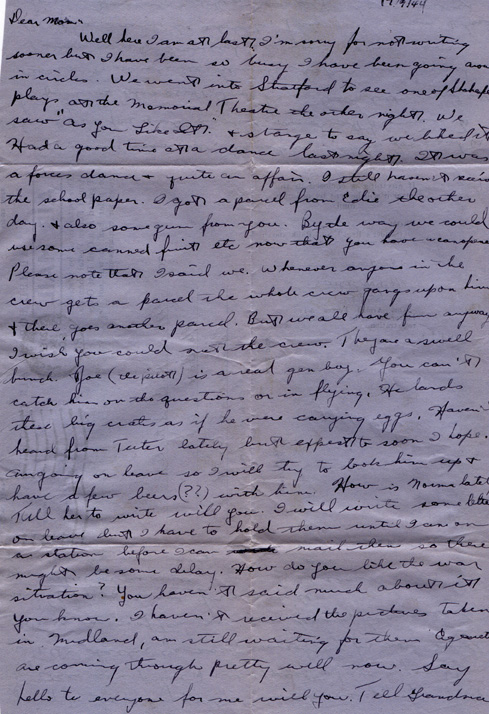 17/9/44
Dear Mom:
Well here I am at last, I'm sorry for not writing
sooner but I have been so busy I have been going aro
in circles. We went into Stratford to see one of Shakesp
plays at the Memorial Theatre the other night. We
saw "As You Like It" & strange to say we liked it
Had a good time at a dance last night. It was
a forces dance & quite an affair. I still haven't recei
the school paper. I got a parcel from Edie the other
day. & also some gum from you. By de way we could
use some canned fruit etc now that you have
Please note that I said we. Whenever anyone in the
crew gets a parcel the whole crew gangs upon him
& there goes another parcel. But we all have fun anyway
I wish you could meet the crew. They are a swell
bunch. Joe (the pilot) is a real gen boy. You can't
catch him on the questions or in flying. He lands
these big crates as if he were carrying eggs. Haven't
heard from Tuter lately but expect to soon I hope.
am going on leave so I will try to look him up &
have a few beers (??) with him. How is Norma late
Tell her to write will you. I will write some lette
on leave but I have to hold them until I am on
a station before I can mail them so there
might be some delay. How do you like the war
situation? You haven't said much about it
you know. I haven't received the pictures taken
in Midland, am still waiting for them
are coming through pretty well now. Say
hello to everyone for me will you. Tell Grandma